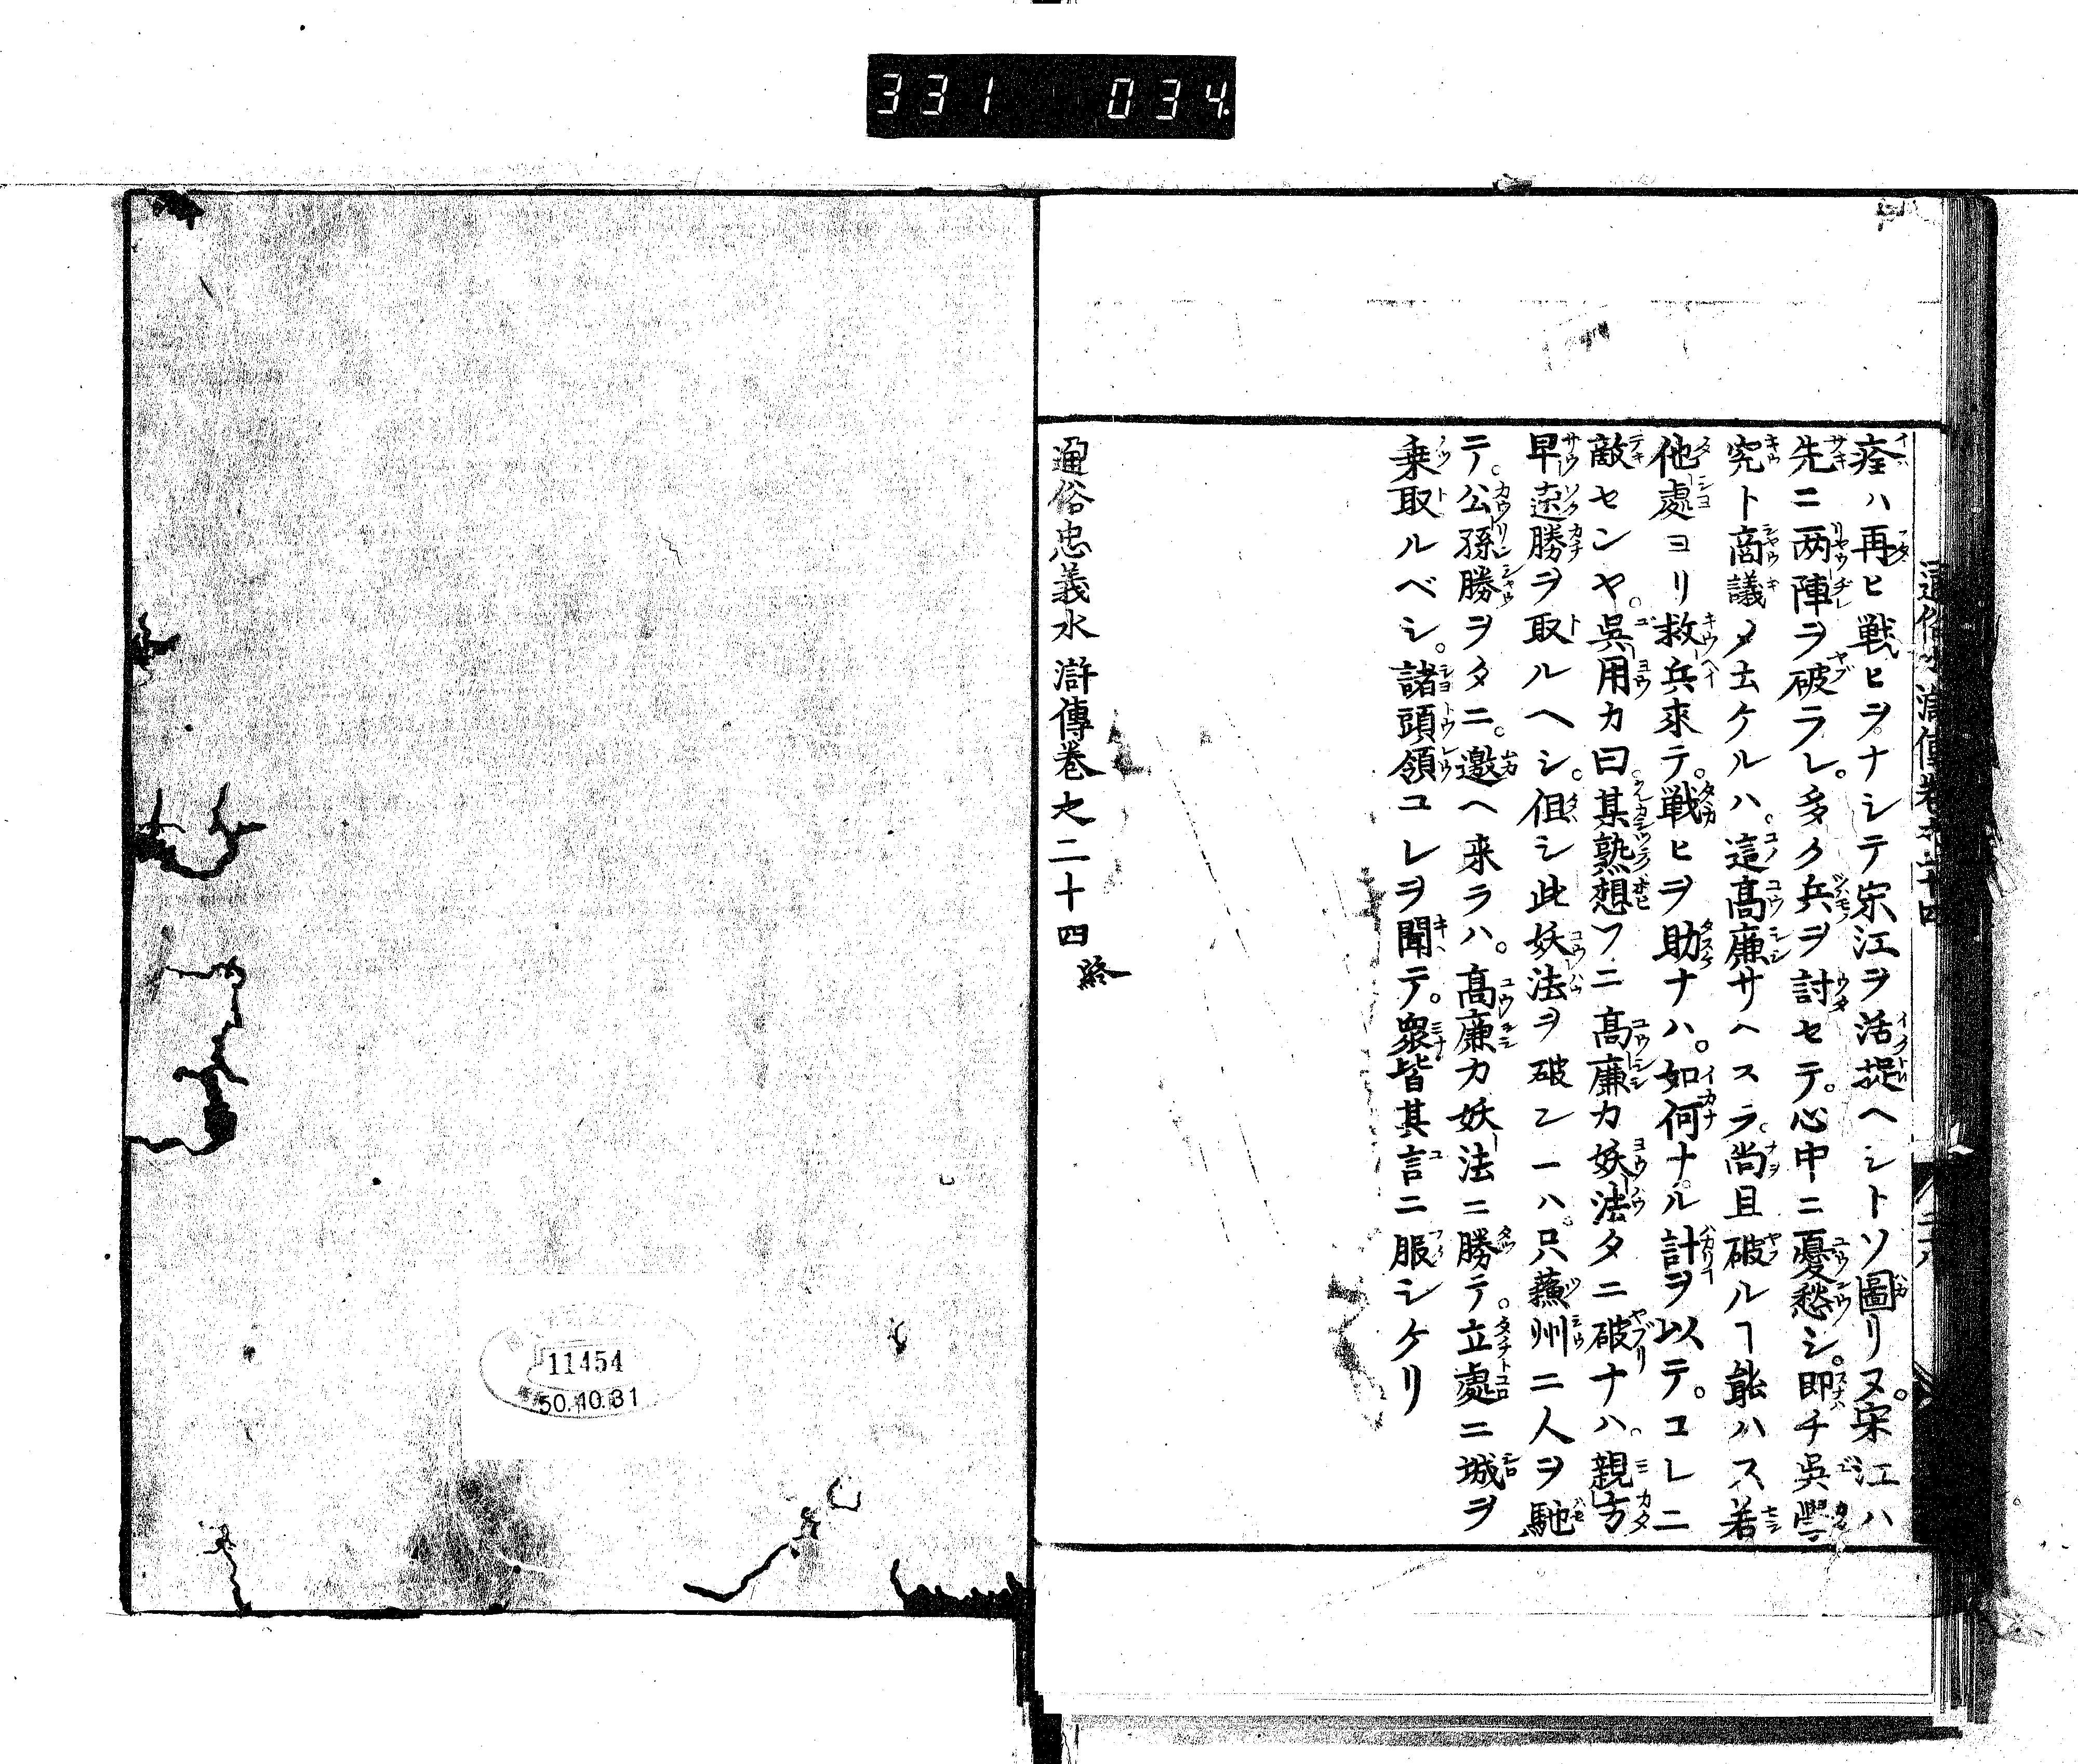 331 034
痊ハ再ヒ戦ヒヲナシテ宋江ヲ活捉ヘシトソ圖リヌ。宋江ハ
先ニ两陣ヲ破ラレ。多ク兵ヲ討セテ。心中ニ憂愁シ。即チ吳學
究ト商議メ𠮷ケルハ。這高廉サヘスラ。尚且破ルヿ能ハス若
他處ヨリ救兵來テ。戦ヒヲ助ナハ。如何ナル計ヲ以テ。コレニ
敵センヤ。吳用カ曰。某熟想フニ高廉カ妖法タニ破ナハ。親方
早速勝ヲ取ルヘシ。但シ此妖法ヲ破ンヿハ。只薊州ニ人ヲ馳
テ。公孫勝ヲタニ。邀ヘ来ラハ。高廉カ妖法ニ勝テ。立處ニ城ヲ
乗取ルベシ。諸頭領コレヲ聞テ。衆皆其言ニ服シケリ
通俗忠義水滸傳巻之二十四終
11454
50.10.31